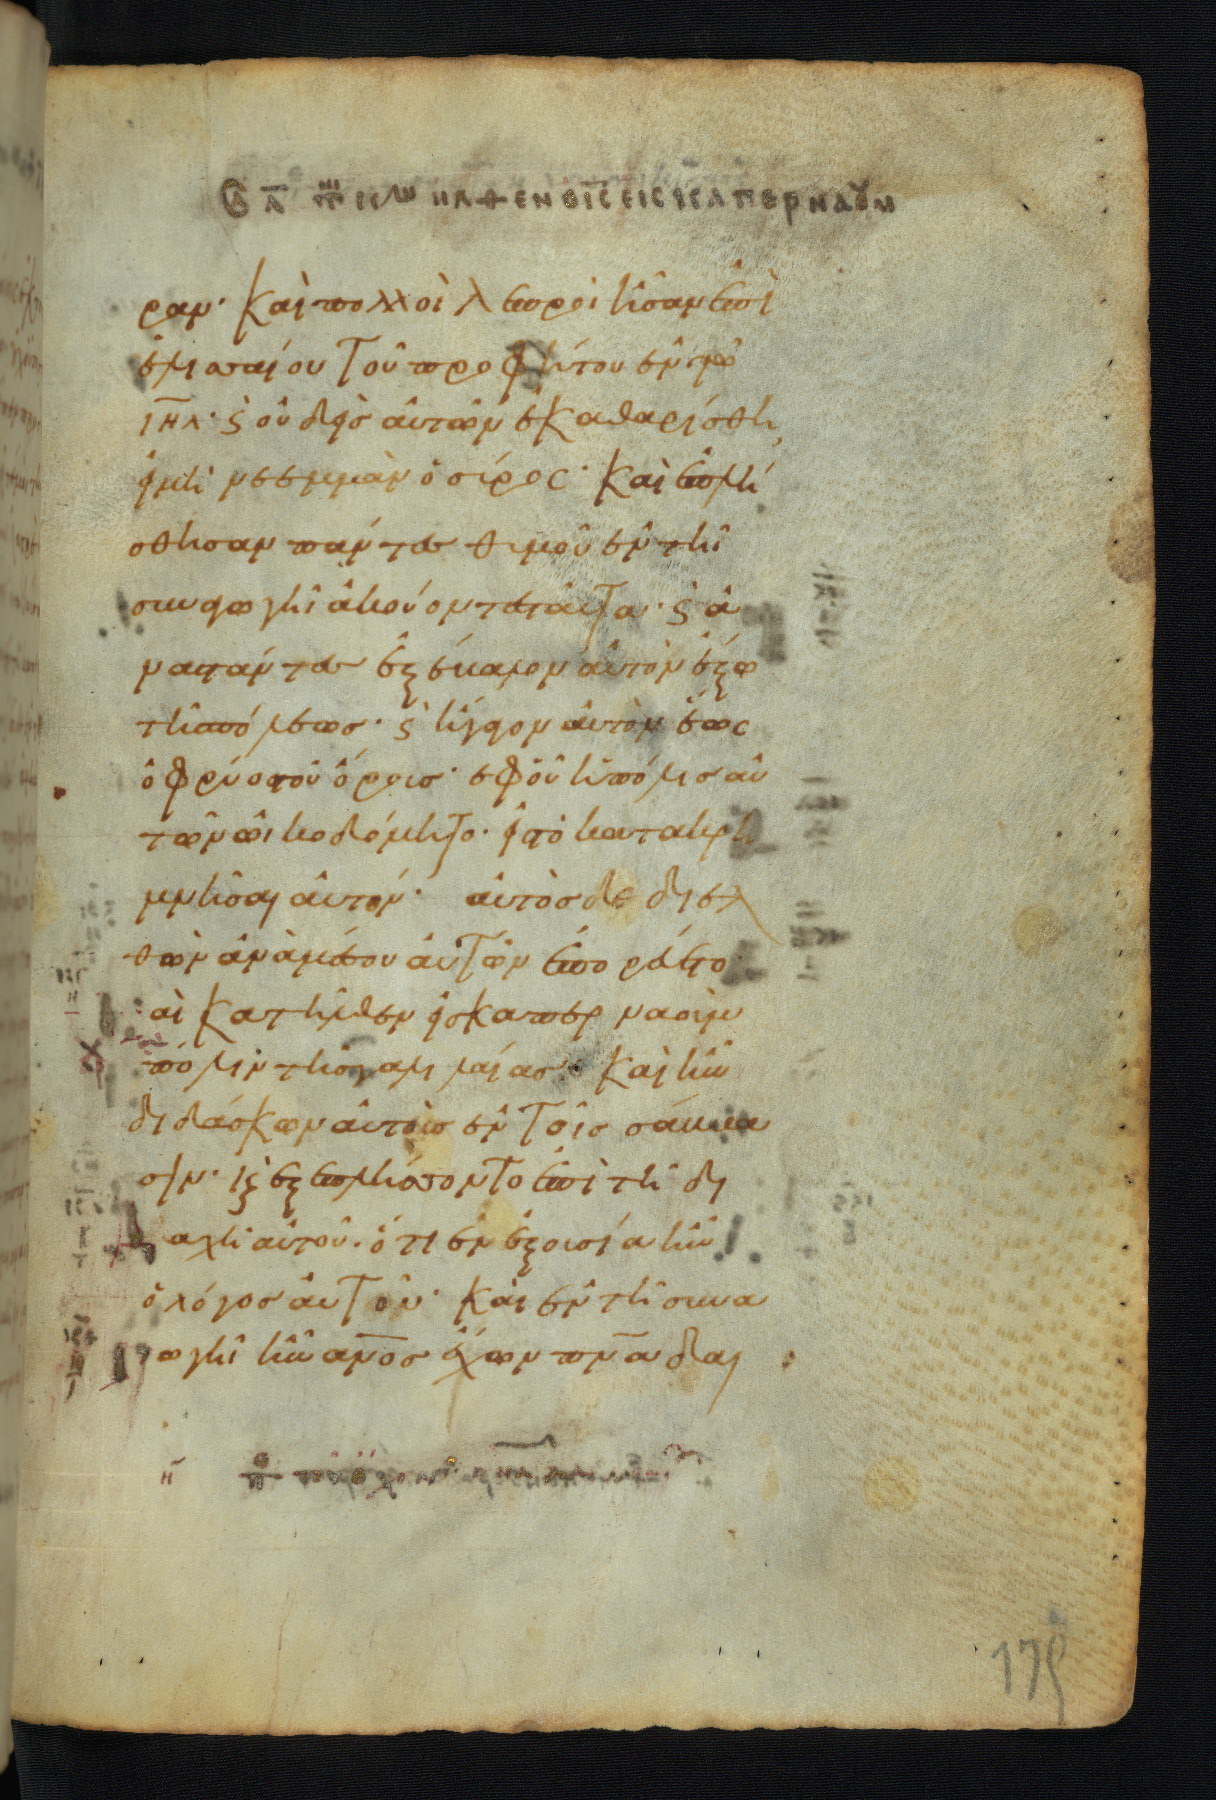 ηλθεν ο ις εις καπερναουμ
ραν· Και πολλοὶ λεπροὶ ἦσαν ἐπὶ
ἐλισσαίου τοῦ προφήτου ἐν τῶ
ιηλ· ϛ οὐδεὶς αὐτῶν ἐκαθαρίσθη
εἰ μὴ νεεμμὰν ὁ σίρος· Καὶ ἐπλή
σθησαν πάντες θυμοῦ ἐν τῆ
συναγωγῆ ἀκούοντες ταῦτα· ϛ ἀ
ναστάντες ἐξέβαλον αὐτὸν ἔξω
τῆς πόλεως· ϛ ἤγαγον αὐτὸν ἕως
ὀφρύος τοῦ ὄρους· ἐφ οὗ ἡ πόλις αὐ
τῶν ὠικοδόμητο· εἰς τὸ κατακρη
μνῆσαι αὐτόν· αὐτὸς δὲ διελ
θὼν ἀνὰ μέσου αὐτῶν ἐπορεύετο·
αὶ Κατῆλθεν εἰς καπερναοὺμ
πόλιν τῆς γαλιλαίας· Καὶ ἦν
διδάσκων αὐτοὺς ἐν τοῖς σάββα
σιν· ϛ ἐξεπλήσσοντο ἐπὶ τῆ δι
αχῆ αὐτοῦ· ὅτι ἐν ἐξουσία ἦν
ὁ λόγος αὐτοῦ· Καὶ ἐν τῆ συνα
ωγῆ ἦν ανος ἔχων πνα δαι
175